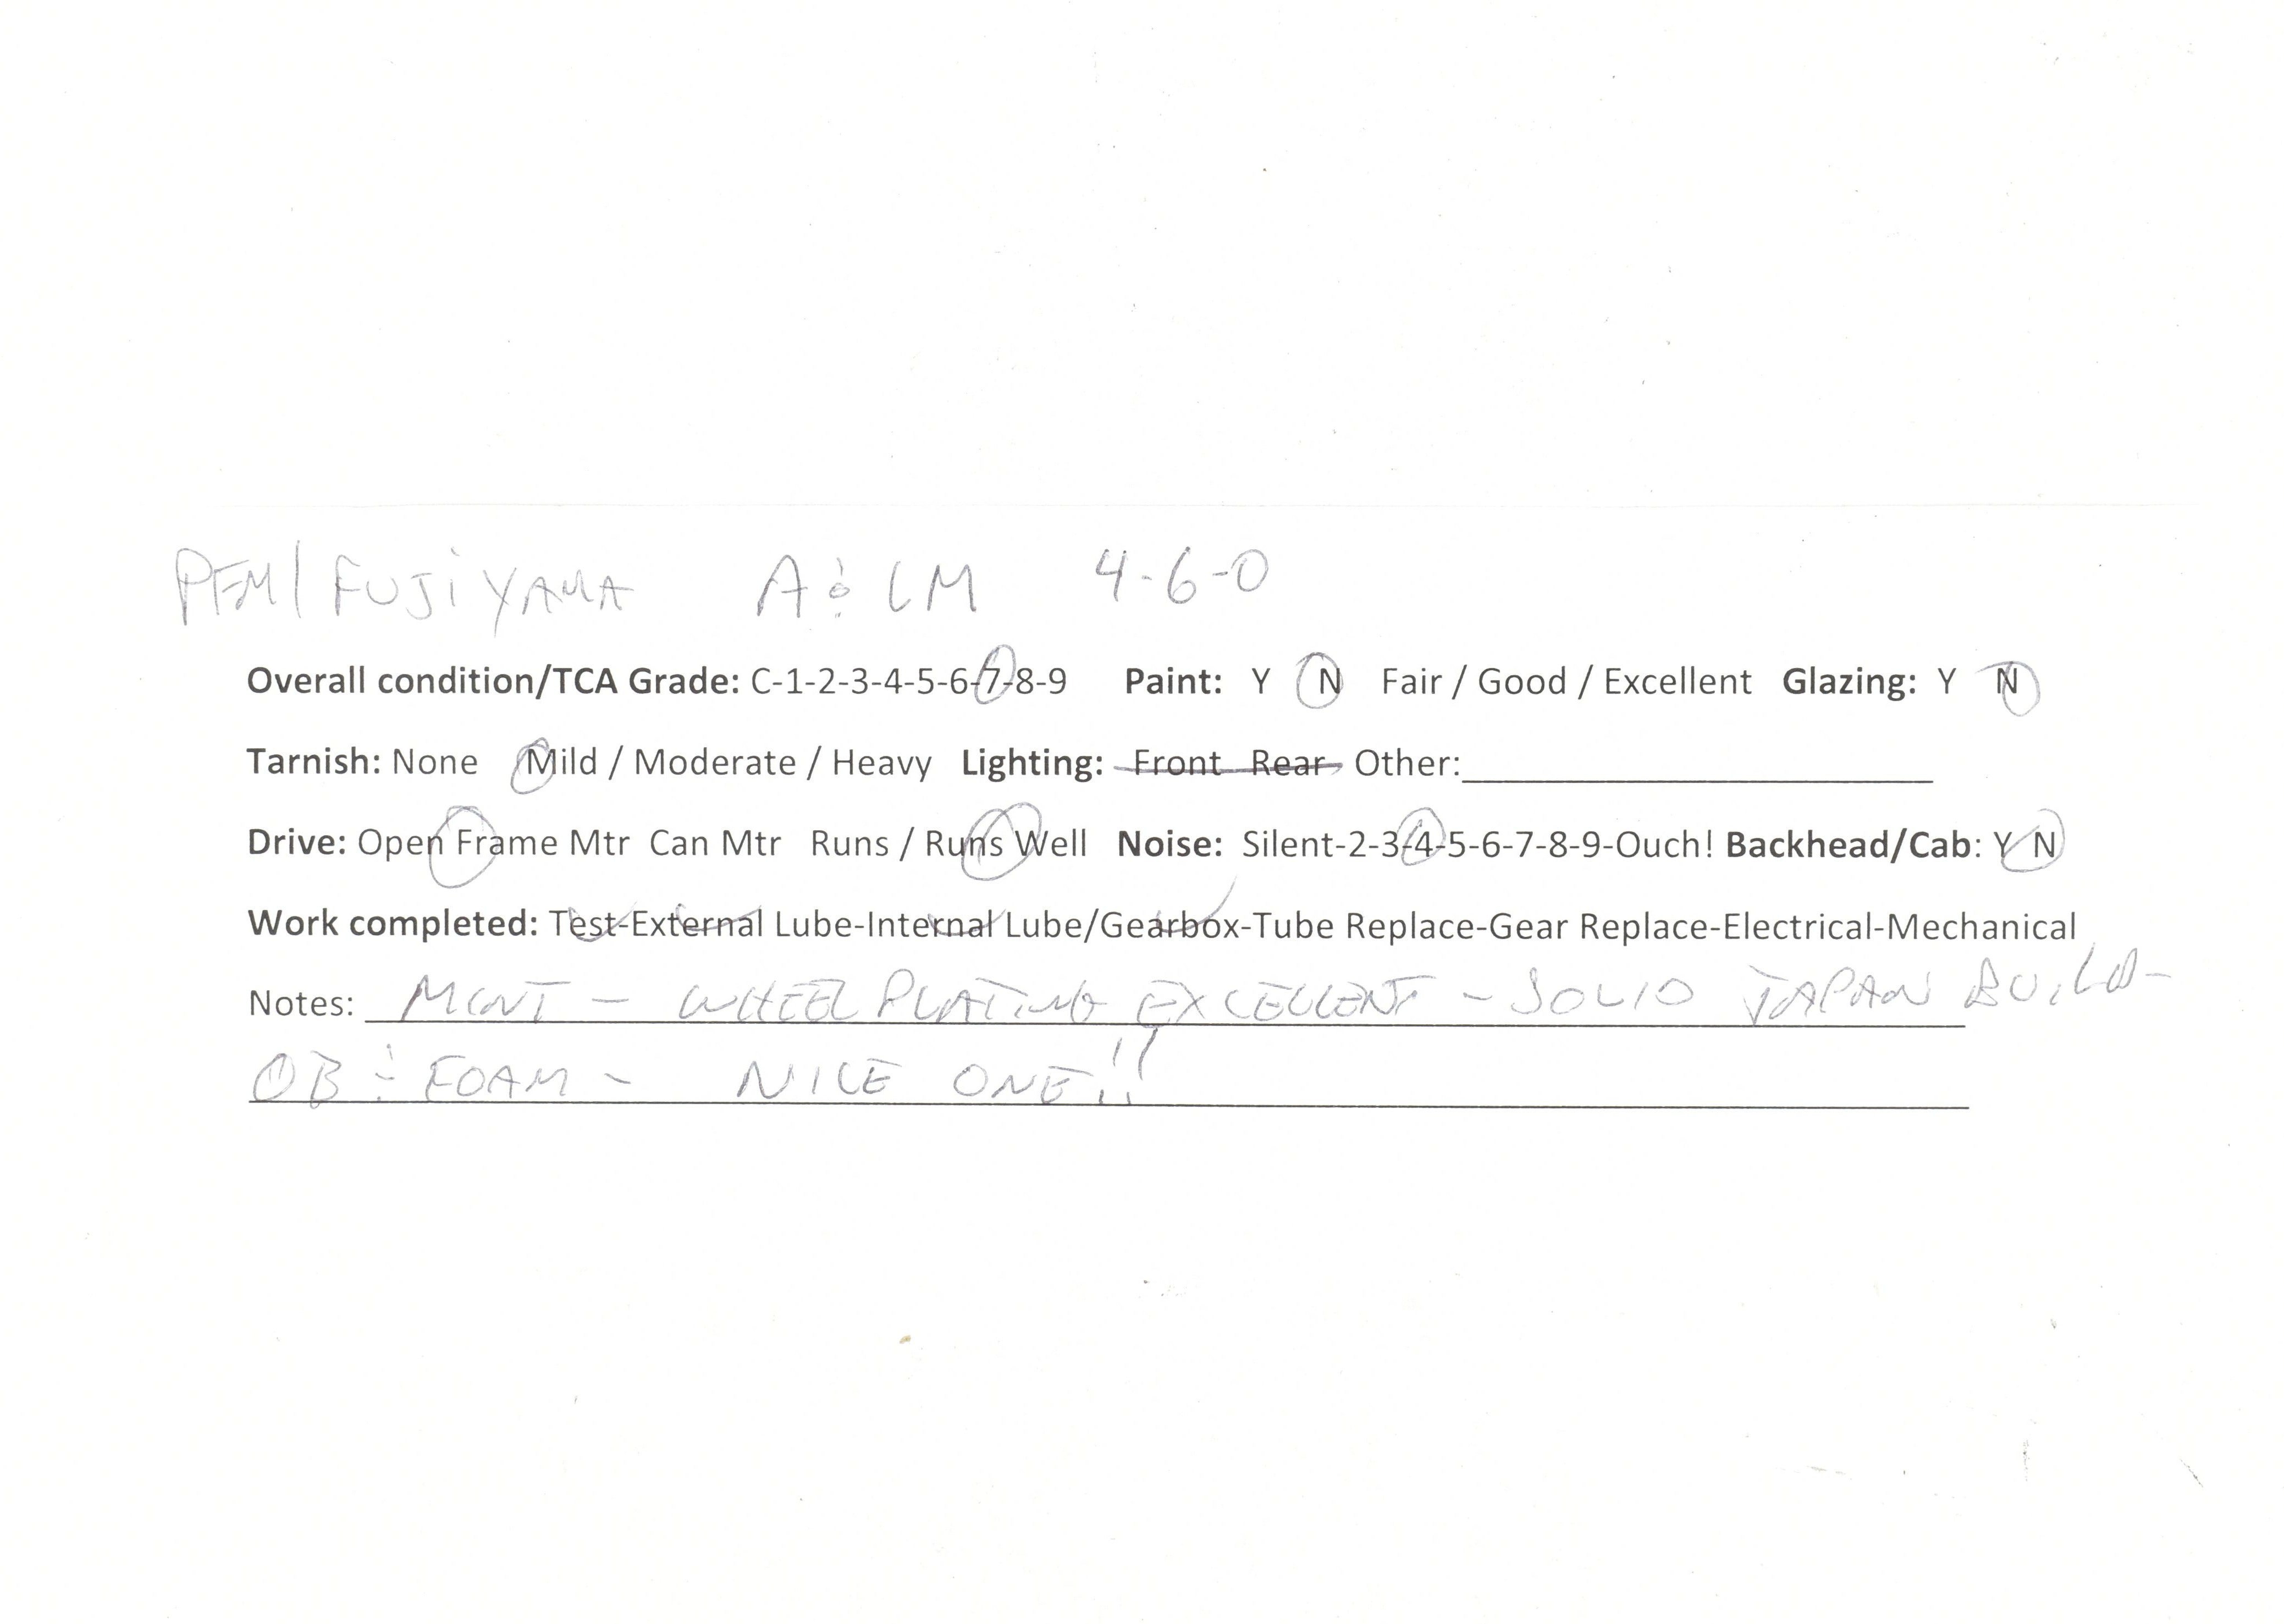 PFM/FUJIYAMA A&LM 4-6-0
Overall condition/TCA Grade: C-1-2-3-4-5-6-7-8-9 Paint: Y N Fair / Good / Excellent Glazing: Y N
Tarnish: None Mild / Moderate / Heavy Lighting: Front Rear Other:
Drive: Open Frame Mtr Can Mtr Runs / Runs Well Noise: Silent-2-3-4-5-6-7-8-9-Ouch! Backhead/Cab: Y N
Work completed: Test-External Lube-Internal Lube/Gearbox-Tube Replace-Gear Replace-Electrical-Mechanical
Notes: MINT - WHEEL PLATING EXCELLENT - SOLID JAPAN BUILD-
OB & FOAM - NICE ONE!!